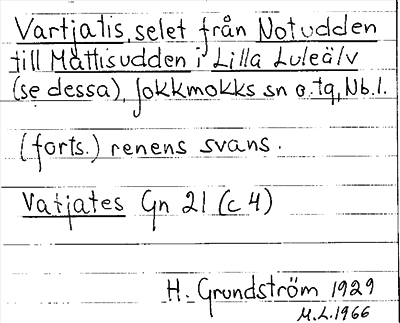 Vartjatis, selet från Notudden
till Mattisudden i Lilla Luleälv
(se dessa), Jokkmokks sn o. tg, Nb. l.
(forts.) renens svans.
Vatjates Gn 21 (c 4)
H. Grundström 1929
M.L. 1966